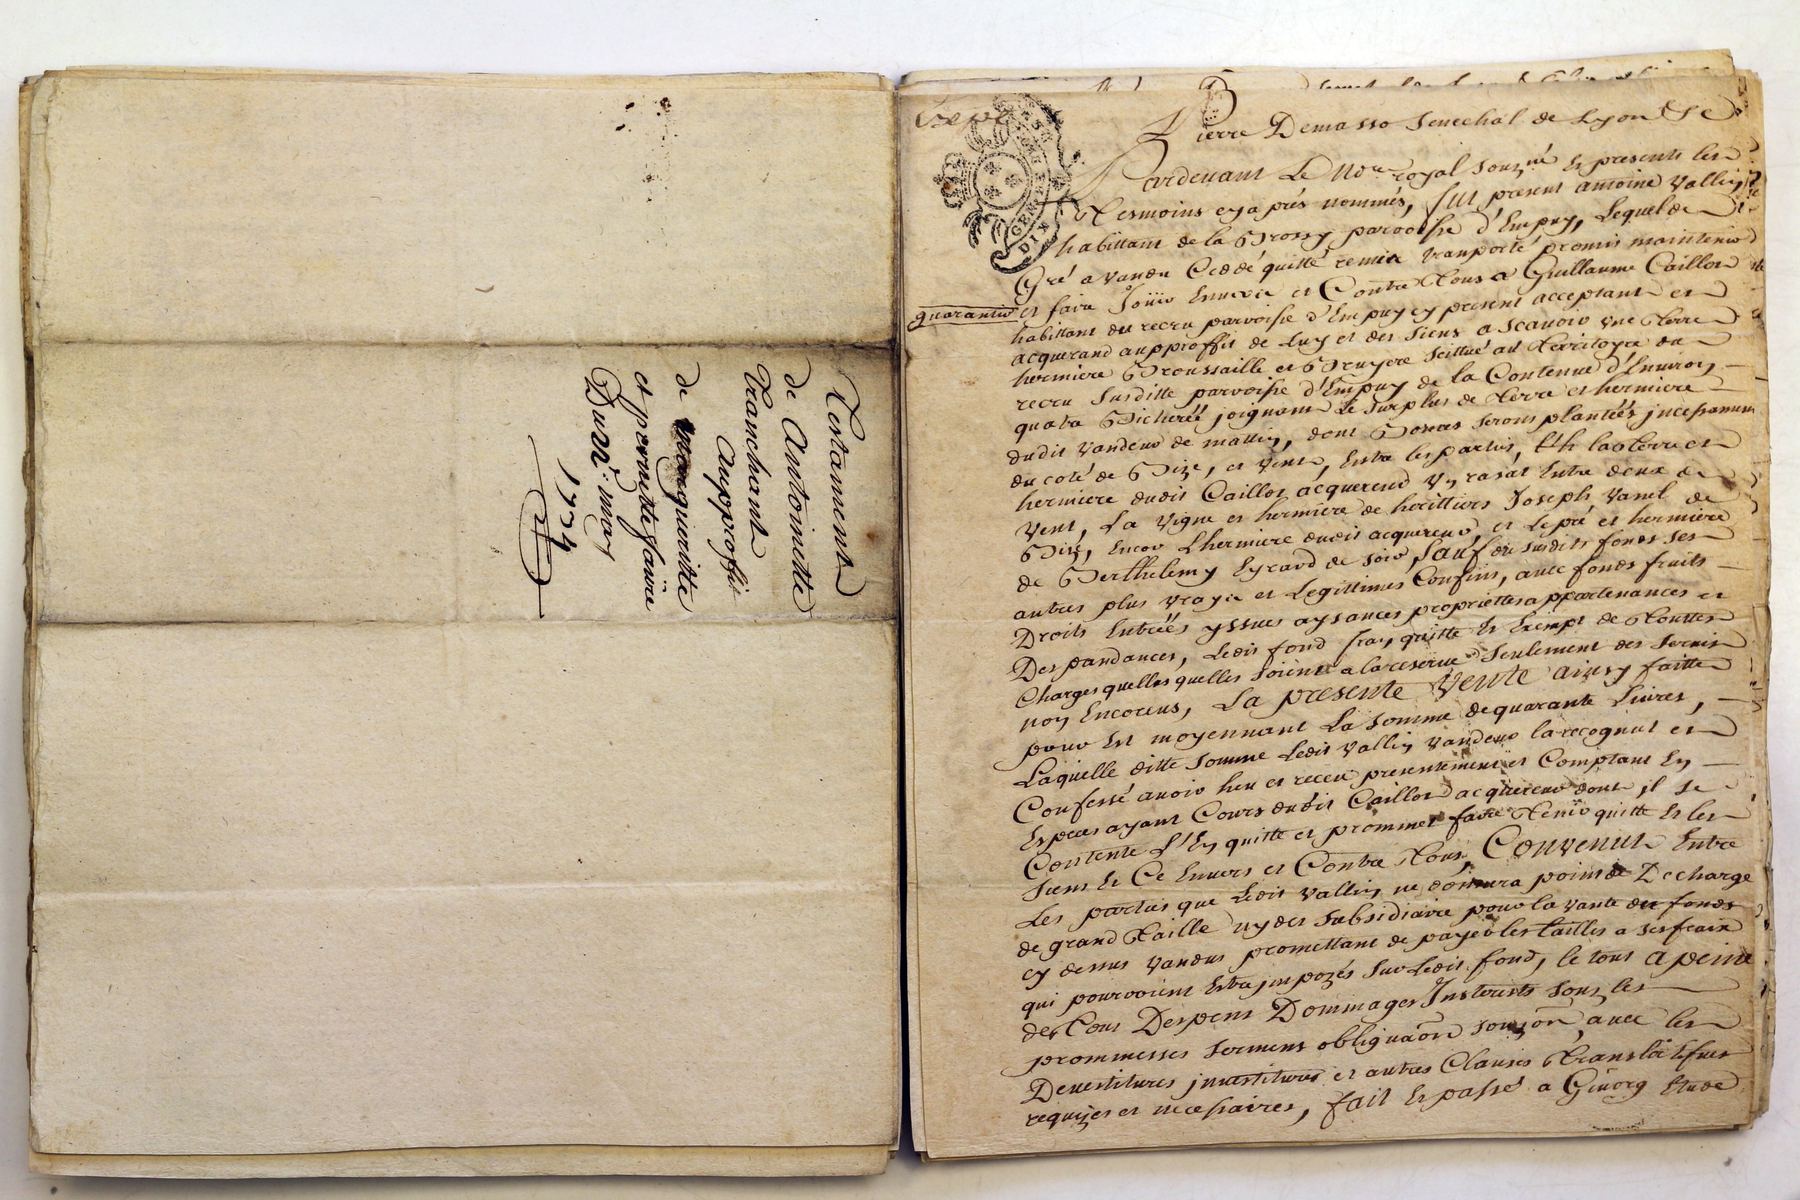 Testament
de Antoinette
Tranchant
aupproffit
de Margueritte
et pernette faure
Du 21e may
1734
GEN
DIX
Pierre Demasso Senechal de Lyon
Pardevant Le Nore royal souzné Es presents les
Tesmoins cy apres nommés, fut present antoine Vallin
habittant de la Brossy parroisse d'Empuy, Lequel de
Gré a vandu Ceddé quitté remis transporté promis maintenir
guarantir
et faire Jouir Envers et Contre Tous a Guillaume Caillot
habittant du recru parroisse d'Empuy cy present acceptant et
acquerand aupproffit de Luy et des siens a scavoir une Terre
hermiere Broussaille et Bruyere scittué au Territoyre du
recru susditte parroisse d'Empuy de la Contenue d'Environ
quatre Bicherée, joignant Le surplus de Terre et hermiere
dudit vandeur de mattin, dont Bornes seront plantées incessament
du coté de Bize, et vent, Entre les parties, la Terre et
hermiere dudit Caillot acquereur un rasat Entre deux de
vent, La vigne et hermiere de heritiers Joseph vanel de
Bize, Encor L'hermiere dudit acquereur et Le pré et hermiere
de Berthelemy Eyrard de soir, sauf du susdits fonds ses
autres plus vrays et Legittimes Confins, avec fonds fruits
Droits Entrées yssues aysances proprietes appartenances et
Despandances, Ledit fond franq quitte et Exempt de Touttes
Charges quelles quelles soient a la reserve seulement des servis
non Encorus, La presente Vente ainsy faitte
pour Et moyennant La somme de quarante Livres,
Laquelle ditte somme Ledit vallin vandeur la recognut et
Confessé avoir heu et receu presentement et Comptant En
Especes ayant Cours dudit Caillot acquereur dont il se
Contente L'En quitte et prommet faire Tenir quitte Et les
siens Et Ce Envers et Contre Tous, Convenut Entre
Les parties que Ledit vallin ne donnera point de Decharge
de grand Taille ny des subsidiaire pour la vante du fonds
cy dessus vandus promettant de payer les tailles a ses frais
qui pourroient Estre imposés sur Ledit fond, le tout a peine
de Tous Despens Dommages Interests sous les
prommesses serments obliguaon souzon avec les
Devestitures investitures et autres Clauses Translatifues
requises et necessaires, fait Et passé a Givorg Etude